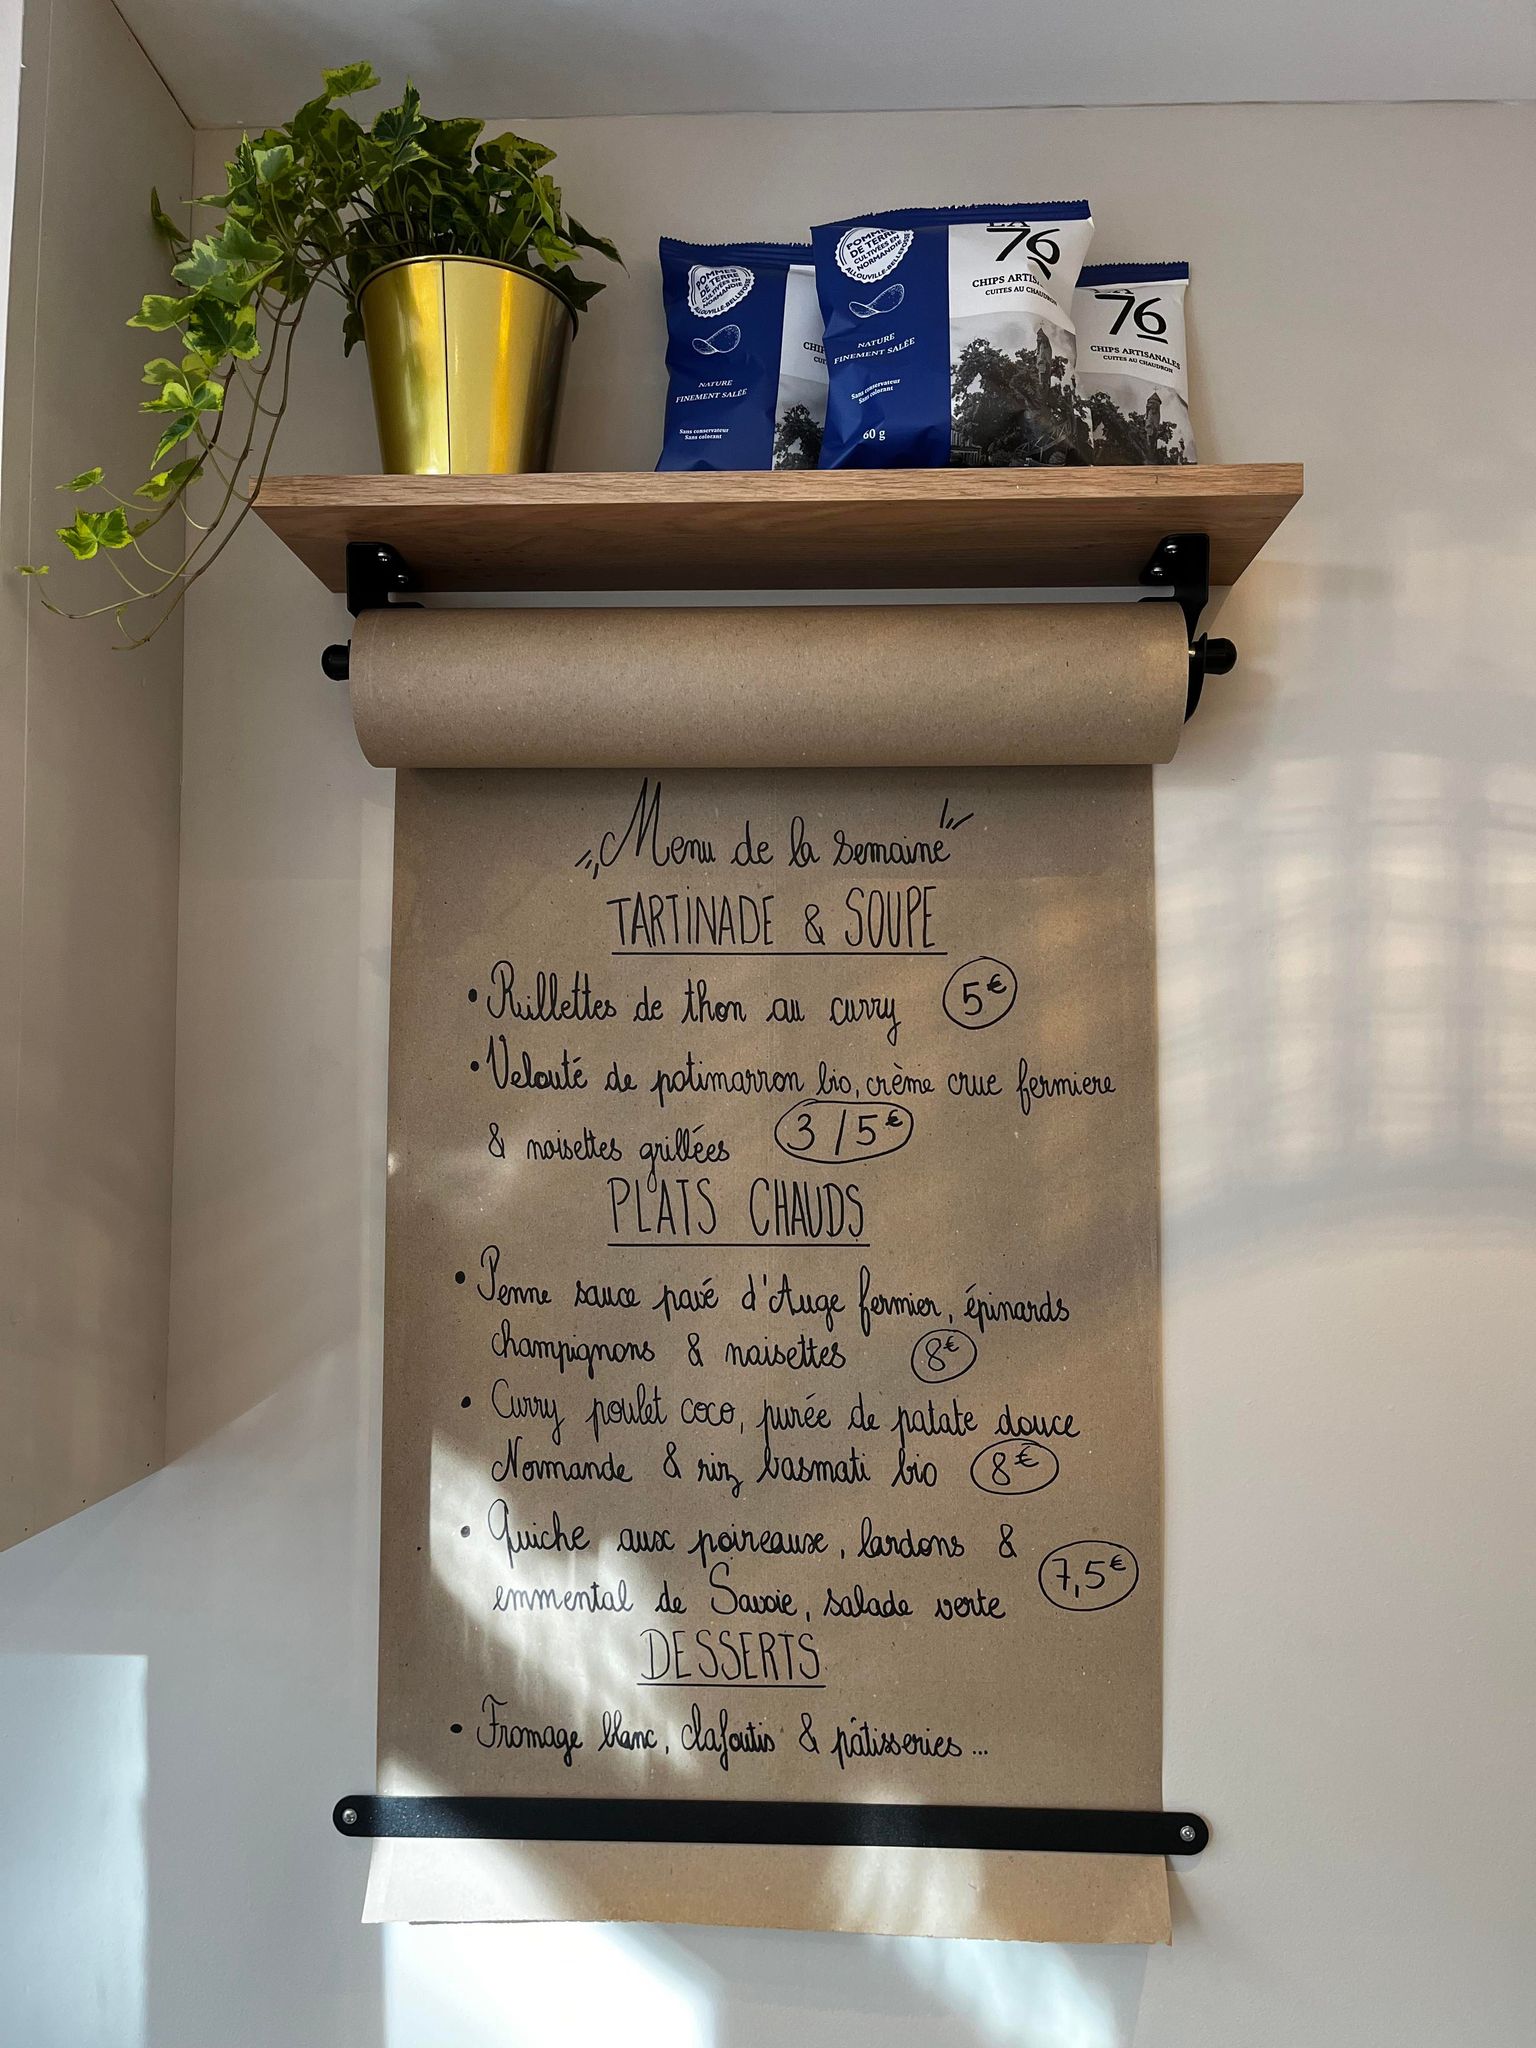 POMMES
DE TERRE
CULTIVÉES EN
NORMANDIE
ALLOUVILLE-BELLEFOSSE
NATURE
FINEMENT SALÉE
Sans conservateur
Sans colorant
POMMES
DE TERRE
CULTIVÉES EN
NORMANDIE
ALLOUVILLE-BELLEFOSSE
NATURE
FINEMENT SALÉE
Sans conservateur
Sans colorant
60 g
LA
76
CHIPS ARTIS
CUITES AU CHAUDRON
76
CHIPS ARTISANALES
CUITES AU CHAUDRON
Menu de la semaine
TARTINADE & SOUPE
• Rillettes de thon au curry 5€
• Velouté de potimarron bio, crème crue fermiere
& noisettes grillées 3/5€
PLATS CHAUDS
• Penne sauce pavé d'Auge fermier, épinards
champignons & noisettes 8€
• Curry poulet coco, purée de patate douce
Normande & riz basmati bio 8€
• Quiche aux poireaux, lardons &
emmental de Savoie, salade verte 7,5€
DESSERTS
• Fromage blanc, clafoutis & pâtisseries...